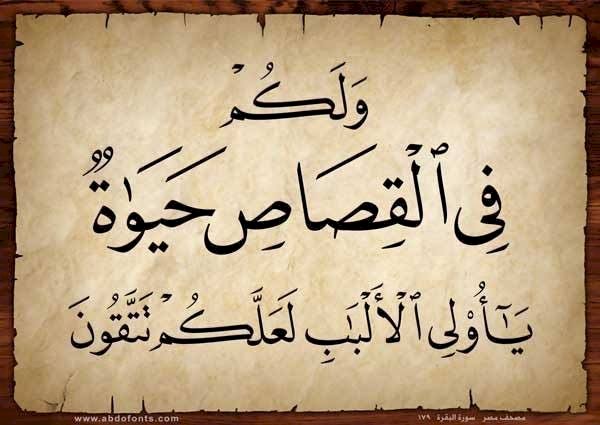 وَلَكُمْ
فِى ٱلْقِصَاصِ حَيَوٰةٌ
يَـٰٓأُو۟لِى ٱلْأَلْبَـٰبِ لَعَلَّكُمْ تَتَّقُونَ
مصحف مصر سورة البقرة ١٧٩
www.abdofonts.com